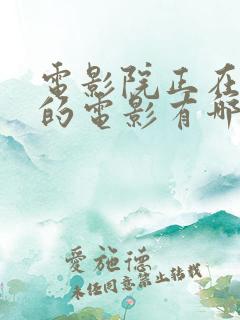 電影院正在
的電影有哪
愛施德
未經同意禁止轉載